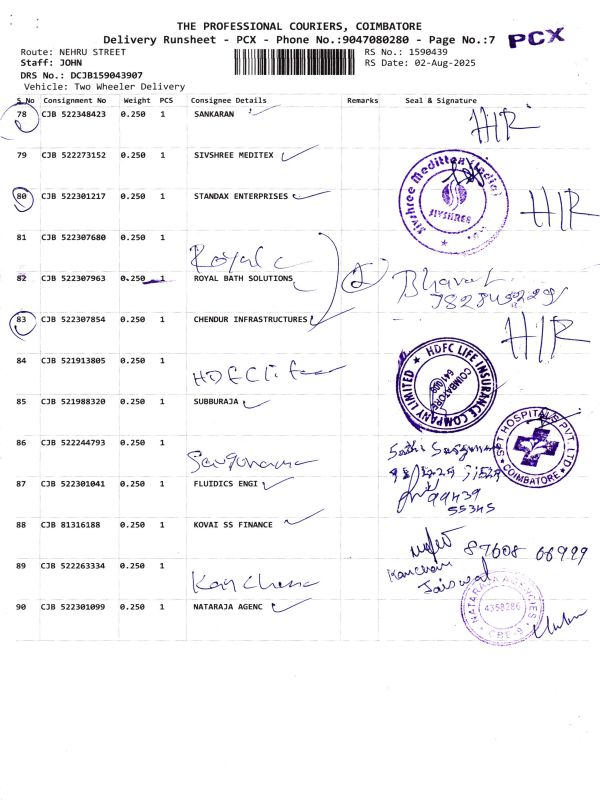 THE PROFESSIONAL COURIERS, COIMBATORE
Delivery Runsheet - PCX - Phone No.:9047080280 - Page No.:7 PCX
Route: NEHRU STREET RS No.: 1590439
Staff: JOHN RS Date: 02-Aug-2025
DRS No.: DCJB159043907
Vehicle: Two Wheeler Delivery
S.No Consignment No Weight PCS Consignee Details Remarks Seal & Signature
78 CJB 522348423 0.250 1 SANKARAN HIR
79 CJB 522273152 0.250 1 SIVSHREE MEDITEX
Sivshree Meditex (India)
SIVSHREE
80 CJB 522301217 0.250 1 STANDAX ENTERPRISES HIR
81 CJB 522307680 0.250 1
Royal c
82 CJB 522307963 0.250 1 ROYAL BATH SOLUTIONS 2 Bharat
83 CJB 522307854 0.250 1 CHENDUR INFRASTRUCTURES HIR
84 CJB 521913805 0.250 1
HDFC Life
HDFC LIFE INSURANCE COMPANY LIMITED
COIMBATORE
85 CJB 521988320 0.250 1 SUBBURAJA
SPT HOSPITALS PVT. LTD
COIMBATORE
86 CJB 522244793 0.250 1
87 CJB 522301041 0.250 1 FLUIDICS ENGI
99439
55345
88 CJB 81316188 0.250 1 KOVAI SS FINANCE
87608 66929
89 CJB 522263334 0.250 1
Kanchana
Kanchan
Jaiswal
90 CJB 522301099 0.250 1 NATARAJA AGENC
NATARAJA AGENCIES
4358286
CBE-9